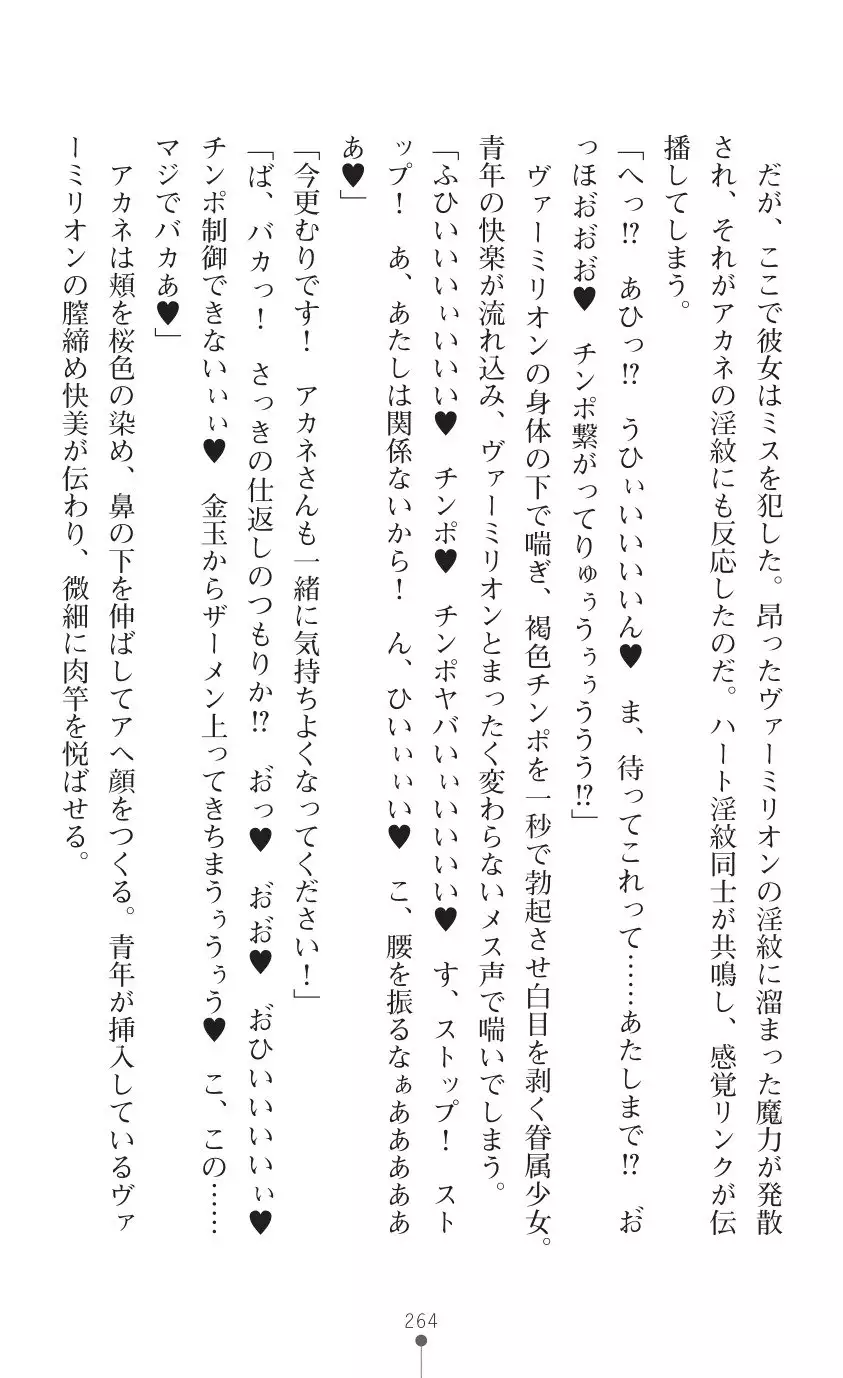 だが、ここで彼女はミスを犯した。昂ったヴァーミリオンの淫紋に溜まった魔力が発散
され、それがアカネの淫紋にも反応したのだ。ハート淫紋同士が共鳴し、感覚リンクが伝
播してしまう。
「へっ⁉　あひっ⁉　うひぃいいいいん♥　ま、待ってこれって……あたしまで⁉　お゙
っほお゙お゙お゙♥　チンポ繋がってりゅぅうぅぅううう⁉」
ヴァーミリオンの身体の下で喘ぎ、褐色チンポを一秒で勃起させ白目を剥く眷属少女。
青年の快楽が流れ込み、ヴァーミリオンとまったく変わらないメス声で喘いでしまう。
「ふひいいいぃいいい♥　チンポ♥　チンポヤバいぃいいいい♥　す、ストップ！　スト
ップ！　あ、あたしは関係ないから！　ん、ひいぃぃい♥　こ、腰を振るなぁあああああ
あ♥」
「今更むりです！　アカネさんも一緒に気持ちよくなってください！」
「ば、バカっ！　さっきの仕返しのつもりか⁉　お゙っ♥　お゙お゙♥　お゙ひいいいいぃ♥
チンポ制御できないぃぃ♥　金玉からザーメン上ってきちまうぅうぅう♥　こ、この……
マジでバカぁ♥」
アカネは頬を桜色の染め、鼻の下を伸ばしてアヘ顔をつくる。青年が挿入しているヴァ
ーミリオンの膣締め快美が伝わり、微細に肉竿を悦ばせる。
264